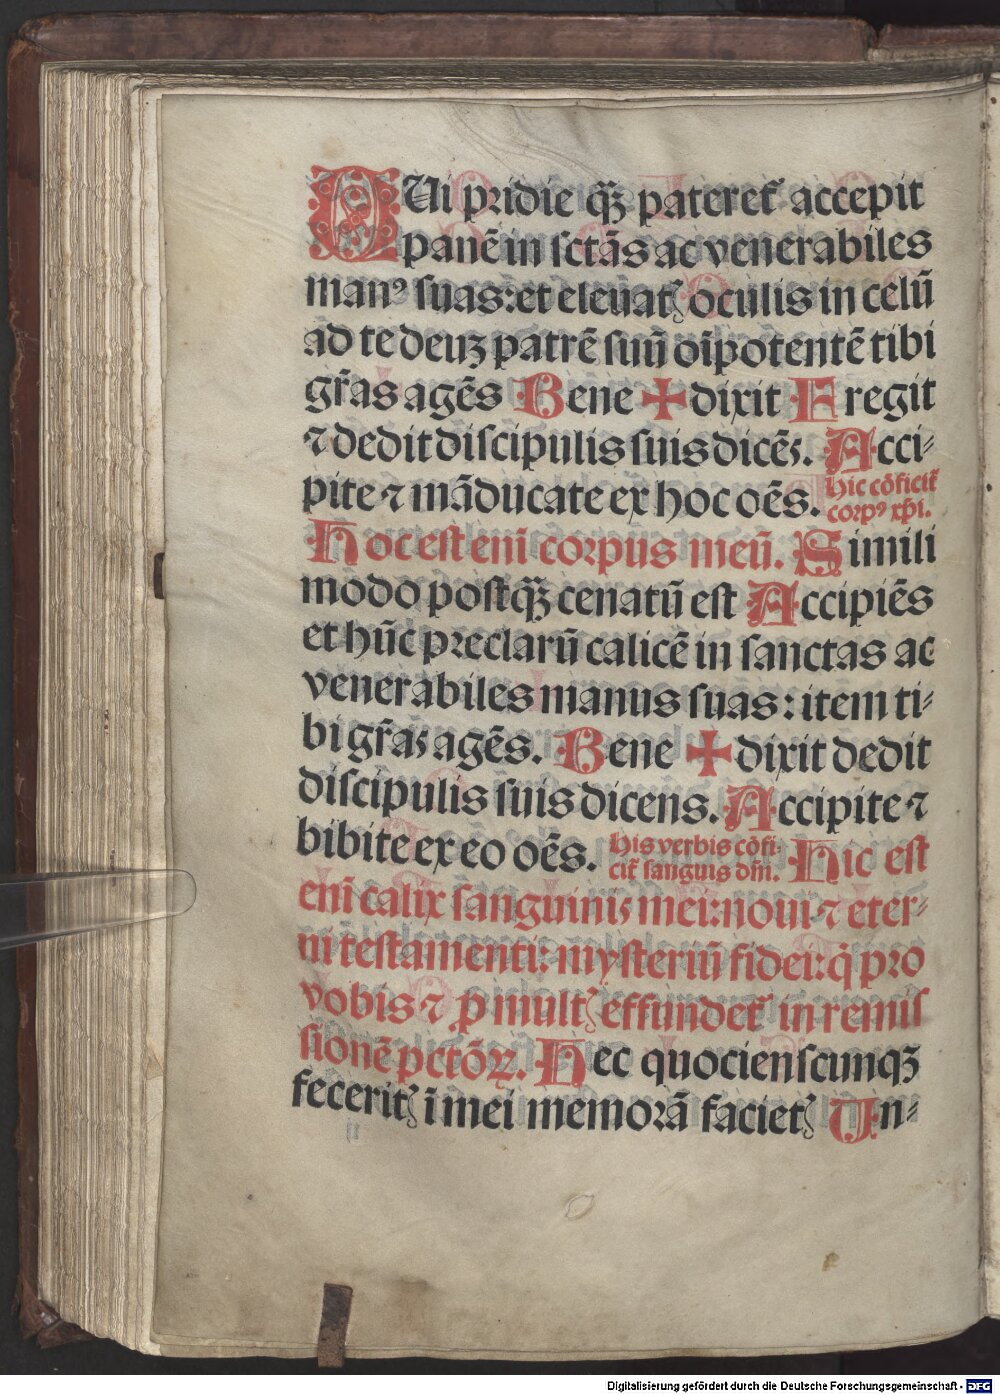 QUi pridie qꝫ pateret᷑ accepit
panē in sctās ac venerabiles
manꝰ suas: et eleuatꝭ oculis in celū
ad te deuꝫ patrē suū oīpotentē tibi
gr̄as agēs Bene ✚ dixit Fregit
⁊ dedit discipulis suis dicēs. Acci-
pite ⁊ māducate ex hoc oēs. hic cōficit᷑
corpꝰ xp̄i.
Hoc est enī corpus meū. Simili
modo postqꝫ cenatū est Accipiēs
et hūc preclarū calicē in sanctas ac
venerabiles manus suas: item ti-
bi gr̄as agēs. Bene ✚ dixit dedit
discipulis suis dicens. Accipite ⁊
bibite ex eo oēs. his verbis cōfi-
cit᷑ sanguis dn̄i. Hic est
enī calix sanguinis mei: noui ⁊ eter-
ni testamenti: mysteriū fidei: q̇ pro
vobis ⁊ ꝓ multꝭ effundet᷑ in remis
sionē pctōꝝ. Hec quocienscunqꝫ
feceritꝭ ī mei memorā facietꝭ Un-
Digitalisierung gefördert durch die Deutsche Forschungsgemeinschaft - DFG